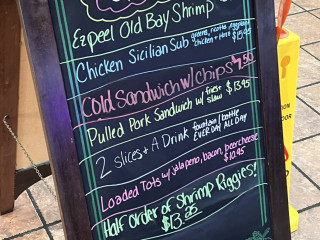 Ezpeel Old Bay Shrimp
Chicken Sicilian Sub greens, ricotta, eggplant
chicken + more $15.95
Cold Sandwich w/ chips 9.50
Pulled Pork Sandwich w/ fries + slaw $13.95
2 slices + A Drink fountain/bottle
EVERDAY ALL DAY
Loaded Tots w/ jalapeno, bacon, beercheese
$10.95
Half Order of Shrimp Riggies!
$13.95